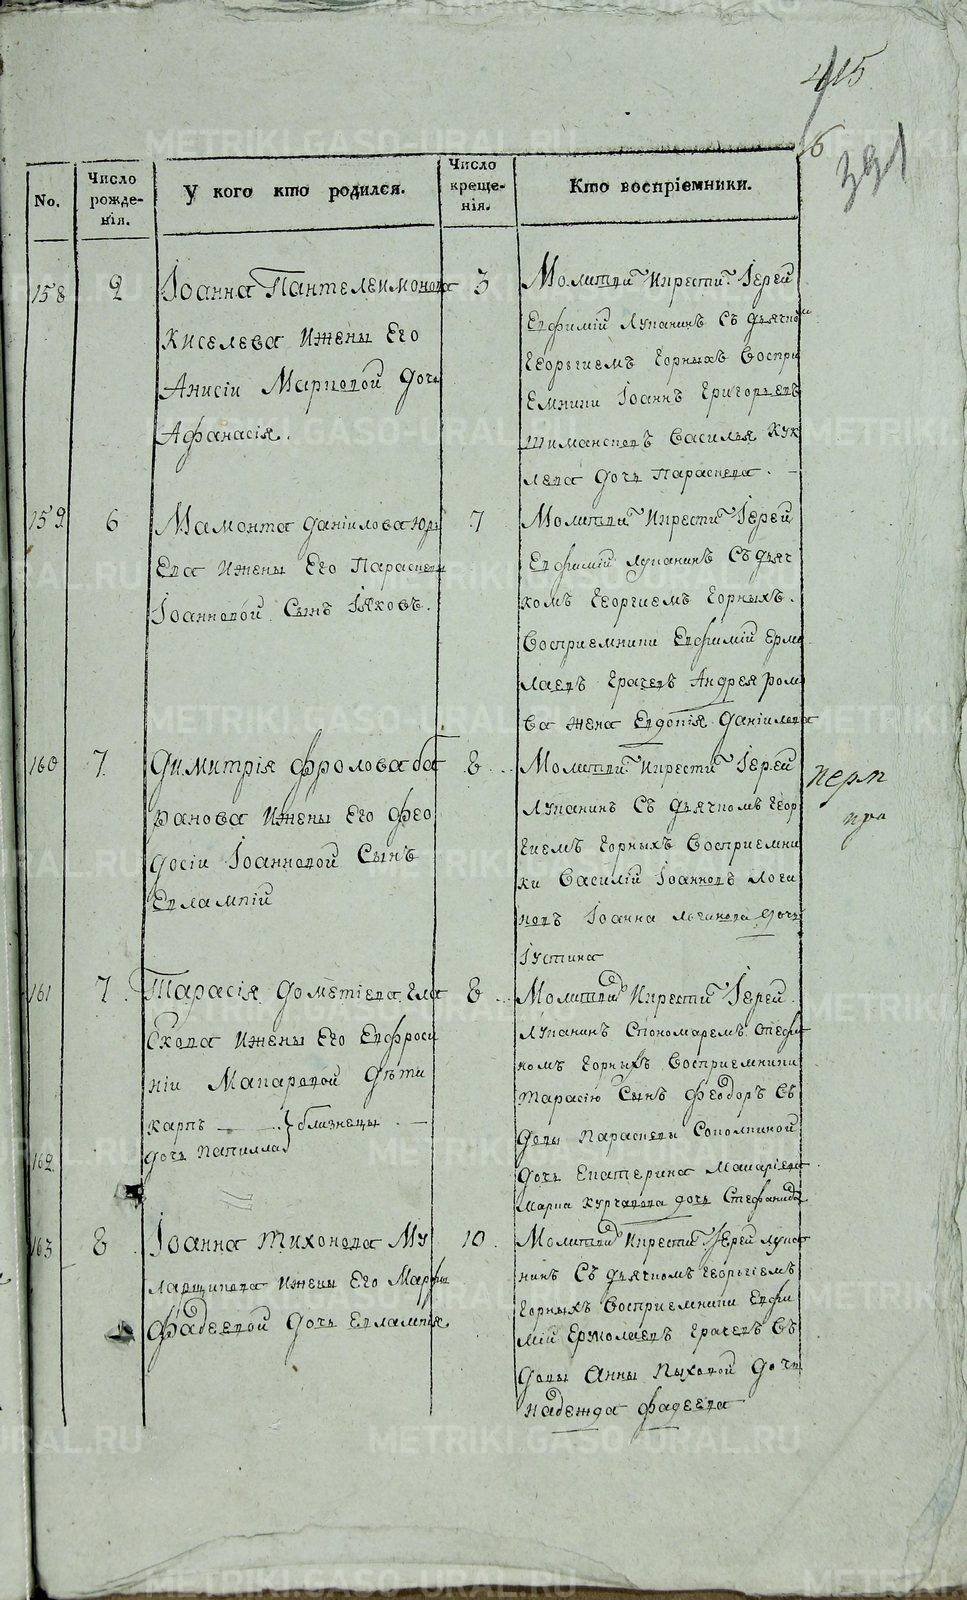 415
6
391
No.
Число рожде-нія.
У кого кто родился.
Число креще-нія.
Кто воспріемники.
158
2
Іоанна Пантелеимонова
Киселева Ижены Его
Анисіи Марковой дочь
Афанасія.
3
Молитвов. Икрестил Іерей
Евфимій Лукания Съ дьячком
Георьгиемъ Горныхъ Воспри
Емники Іоаннъ Григорьевъ
Шимансковъ Василья Кук
лева дочь Параскева. -
159
6
Мамонта Даніилова Юрь
Ева Ижены Его Параскевы
Іоанновой Сынъ Іяковъ.
7
Молитвов. Икрестил Іерей
Евфимій Луканинъ Съ дьяч
комъ Георгиемъ Горныхъ.
Восприемники Евфимій Ермо
лаевъ Грачевъ Андрея Ром
ва жена Евдокія Даніилова
160
7.
Димитрія Фролова ба
ранова Ижены Его Фео
досіи Іоанновой Сынъ
Евлампій
8
Молитвов. Икрестил Іерей
Луканинъ Съ дьячкомъ Геор
гиемъ Горныхъ Восприемни
ки Василій Іоанновъ Логи
новъ Іоанна Логинова дочь
Іустина
161
7.
Тарасія Дометіева Ела
Охова Ижены Его Евфроси
ніи Макаровой Дѣти
Карпъ - близнецы -
162
дочь Капиллад
8
Молитвов. Икрестил Іерей
Луканинъ Спономаремъ Стефа
номъ Горныхъ Восприемники
Тарасію Сынъ Феодоръ Въ
довы Параскевы Соколкиной
дочь Екатерина Макаріева
Мариа Курчапова дочь Стефанида
163
8
Іоанна Тихонова Му
ларщикова Ижены Его Марфы
Фадеевой дочь Евлампія
10.
Молитвов. Икрестил Іерей Лука
нинъ Съ дьячкомъ Георьгиемъ
Горныхъ Восприемники Евфи
мій Ермолаевъ Грачевъ Въ
довы Анны Пыховой дочь
надежда Фадеева
METRIKI.GASO-URAL.RU